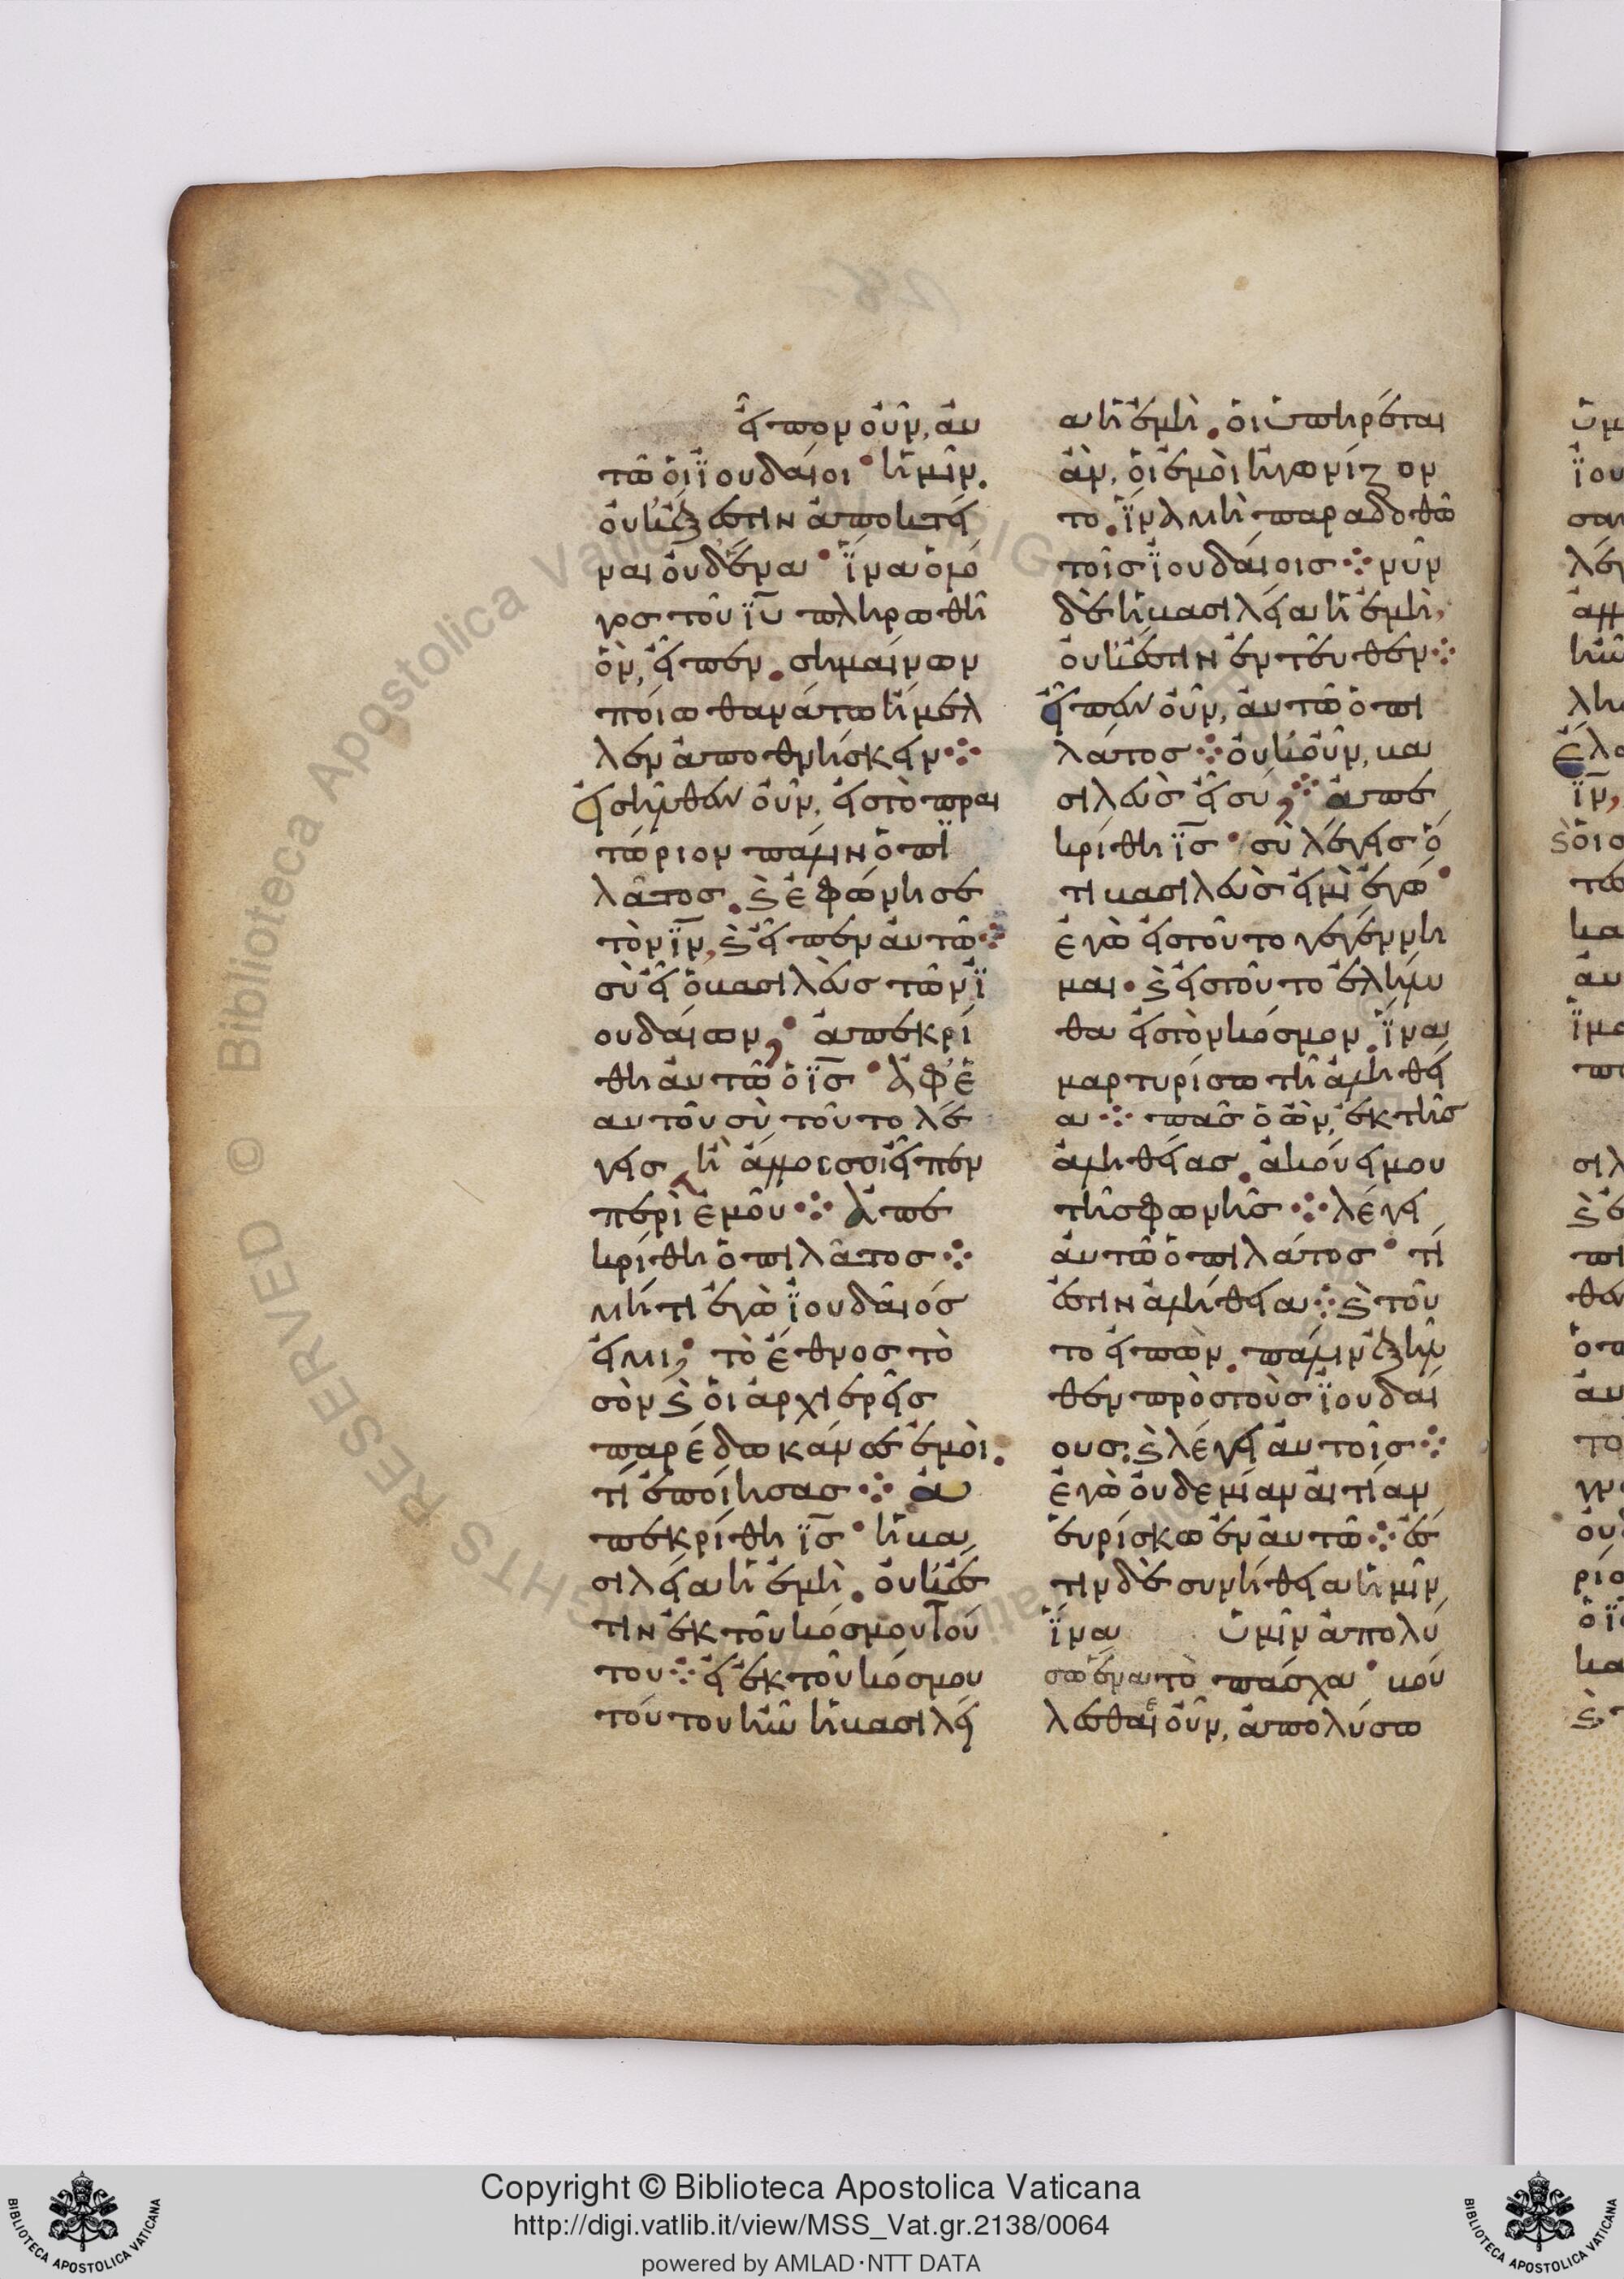 εἶπον οὖν, αὐ
τῶ ὁι ϊουδαίοι· ἡμῖν.
ὀυκ ἔξεστιν ἀποκτεῖ
ναι ὀυδένα· ἵνα ὁ λό
γος τοῦ ῑῡ πληρωθῆ
ὃν, εἶπεν. σημαίνων
ποίω θανάτω ἤμελ
λεν ἀποθνήσκειν⁘
εἰσῆλθεν οὖν, εἰς τὸ πραι
τώριον πάλιν ὁ πι
λᾶτος. ϗ ἐφώνησε
τὸν ῑν̄, ϗ εἶπεν αὐτῶ⁘
σὺ εἶ ὁ βασιλεὺς τῶν ϊ
ουδαίων; ἀπεκρί
θη ἀυτῶ ὁ ῑς̄· ἀφ' ἑ
αυτοῦ σὺ τοῦτο λέ
γεις ἢ ἄλλοι σοι εἶπον
περὶ ἐμοῦ⁘ ἀπε
κρίθη ὁ πιλᾶτος⁘
μήτι ἐγὼ ϊουδαῖός
εἰμι; τὸ ἔθνος τὸ
σὸν ϗ ὁι ἀρχιερεῖς
παρέδωκάν σε ἐμοὶ.
τί ἐποίησας⁘ ἀ
πεκρίθη ῑς̄· ἡ βα
σιλεία ἡ ἐμὴ. ὀυκ ἔσ
τιν ἐκ τοῦ κόσμου τού
του⁘ εἰ ἐκ τοῦ κόσμου
τούτου ἦν ἡ βασιλεί
α ἡ ἐμὴ. ὁι ὑπηρέται
ἂν, ὁι ἐμοὶ ἠγωνίζον
το. ἵνα μὴ παραδοθῶ
τοῖς ϊουδαίοις⁘ νῦν
δὲ ἡ βασιλεία ἡ ἐμὴ,
ὀυκ ἔστιν ἐντεῦθεν⁘
εἶπεν οὖν, ἀυτῶ ὁ πι
λάτος⁘ ὀυκοῦν, βα
σιλεὺς εἶ συ;⁘ ἀπε
κρίθη ῑς̄· σὺ λέγεις ὅ
τι βασιλεὺς εἰμὶ ἐγώ·
ἐγὼ εἰς τοῦτο γεγέννη
μαι· ϗ εἰς τοῦτο ἐλήλυ
θα εἰς τὸν κόσμον. ἵνα
μαρτυρίσω τῆ ἀληθεί
α⁘ πᾶς ὁ ὢν, ἐκ τῆς
ἀληθείας. ἀκούει μου
τῆς φωνῆς⁘ λέγει
ἀυτῶ ὁ πιλάτος· τί
ἐστιν ἀλήθεια⁘ ϗ τοῦ
το εἰπὼν. πάλιν ἐξῆλ
θεν πρὸς τοὺς ϊουδαί
ους. ϗ λέγει ἀυτοῖς⁘
ἐγὼ ὀυδεμίαν ἀιτίαν
ἑυρίσκω ἐν ἀυτῶ⁘ ἔσ
τιν δὲ συνήθεια ἡμῖν,
ἵνα ὑμῖν ἀπολύ
σω ἕνα τὸ πάσχα· βού
λεσθαι οὖν, ἀπολύσω
Copyright © Biblioteca Apostolica Vaticana
http://digi.vatlib.it/view/MSS_Vat.gr.2138/0064
powered by AMLAD·NTT DATA